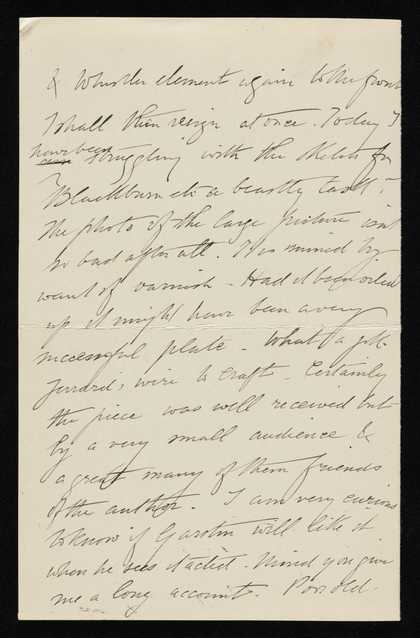 & Whistler element again to the front
I shall then resign at once. Today I
have been struggling with the sketch for
Blackburn etc a beastly task.
The photo of the large picture isnt
so bad after all. It is ruined by
want of varnish - Had it been oiled
up it might have been a very
successful plate - What a
wire to Craft - Certainly
the piece was well received but
by a very small audience &
a great many of them friends
of the author. I am very curious
to know if Garstin will like it
when he sees it acted. Mind you give
me a long account. Poor old